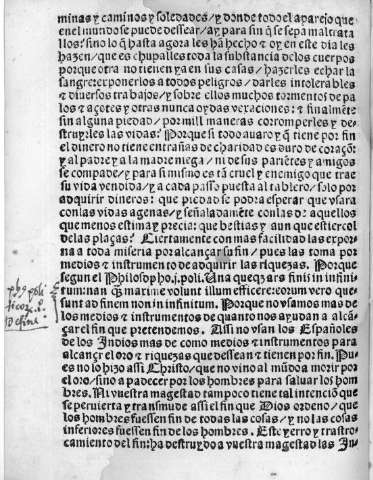 minas y caminos y soledades / y donde todo el aparejo que
en el mundo se puede dessear / ay para sin q̃ se sepa maltrata
llos: sino lo q̃ hasta agora les hã hecho ⁊ oy en este dia les
hazen / que es chupalles toda la substancia d̃los cuerpos
porque otra no tienen ya en sus casas / hazerles echar la
sangre: exponerlos a todos peligros / darles intolerables
⁊ diuersos trabajos / y sobre ellos muchos tormentos de pa
los ⁊ açotes y otras nunca oydas vexaciones: ⁊ finalmẽte
sin alguna piedad / por mill maneras corromperles y des
truyrles las vidas: Porque si todo auaro y q̃ tiene por fin
el dinero no tiene entrañas de charidad es duro de coraçõ:
y al padre y a la madre niega / ni de sus pariẽtes y amigos
se compade / y para si mismo es tã cruel y enemigo que trae
su vida vendida / y a cada passo puesta al tablero / solo por
adquirir dineros: que piedad se podra esperar que vsara
con las vidas agenas / y señaladamẽte con las d̃ aquellos
que menos estima y precia: que bestias y aun que estiercol
de las plaças? Ciertamente con mas facilidad las expor
na a toda miseria por alcançar su fin / pues las toma por
medios ⁊ instrumento de adquirir las riquezas. Porque
segun el Philosopho, i. poli. Una queq̃ ars finit in infini
tum inan q̃ maxime volunt illum efficere: eorum vero que
sunt ad finem non in infinitum. Porque no vsamos mas de
los medios ⁊ instrumentos de quanto nos ayudan a alcã
çar el fin que pretendemos. Assi no vsan los Españoles
de los Indios mas de como medios ⁊ instrumentos para
alcançr el oro ⁊ riquezas que dessean ⁊ tienen por fin. Pu
es no lo hizo assi Christo / que no vino al mũdo a morir por
el oro / sino a padecer por los hombres para saluar los hom
bres. Ni vuestra magestad tampoco tiene tal intenciõ que
se peruierta y transmude assi el fin que Dios ordeno / que
los hombres fuessen fin de todas las cosas / y no las cosas
inferiores fuessen fin de los hombres. Este yerro y trastro
camiento del fin: ha destruydo a vuestra magestad las In